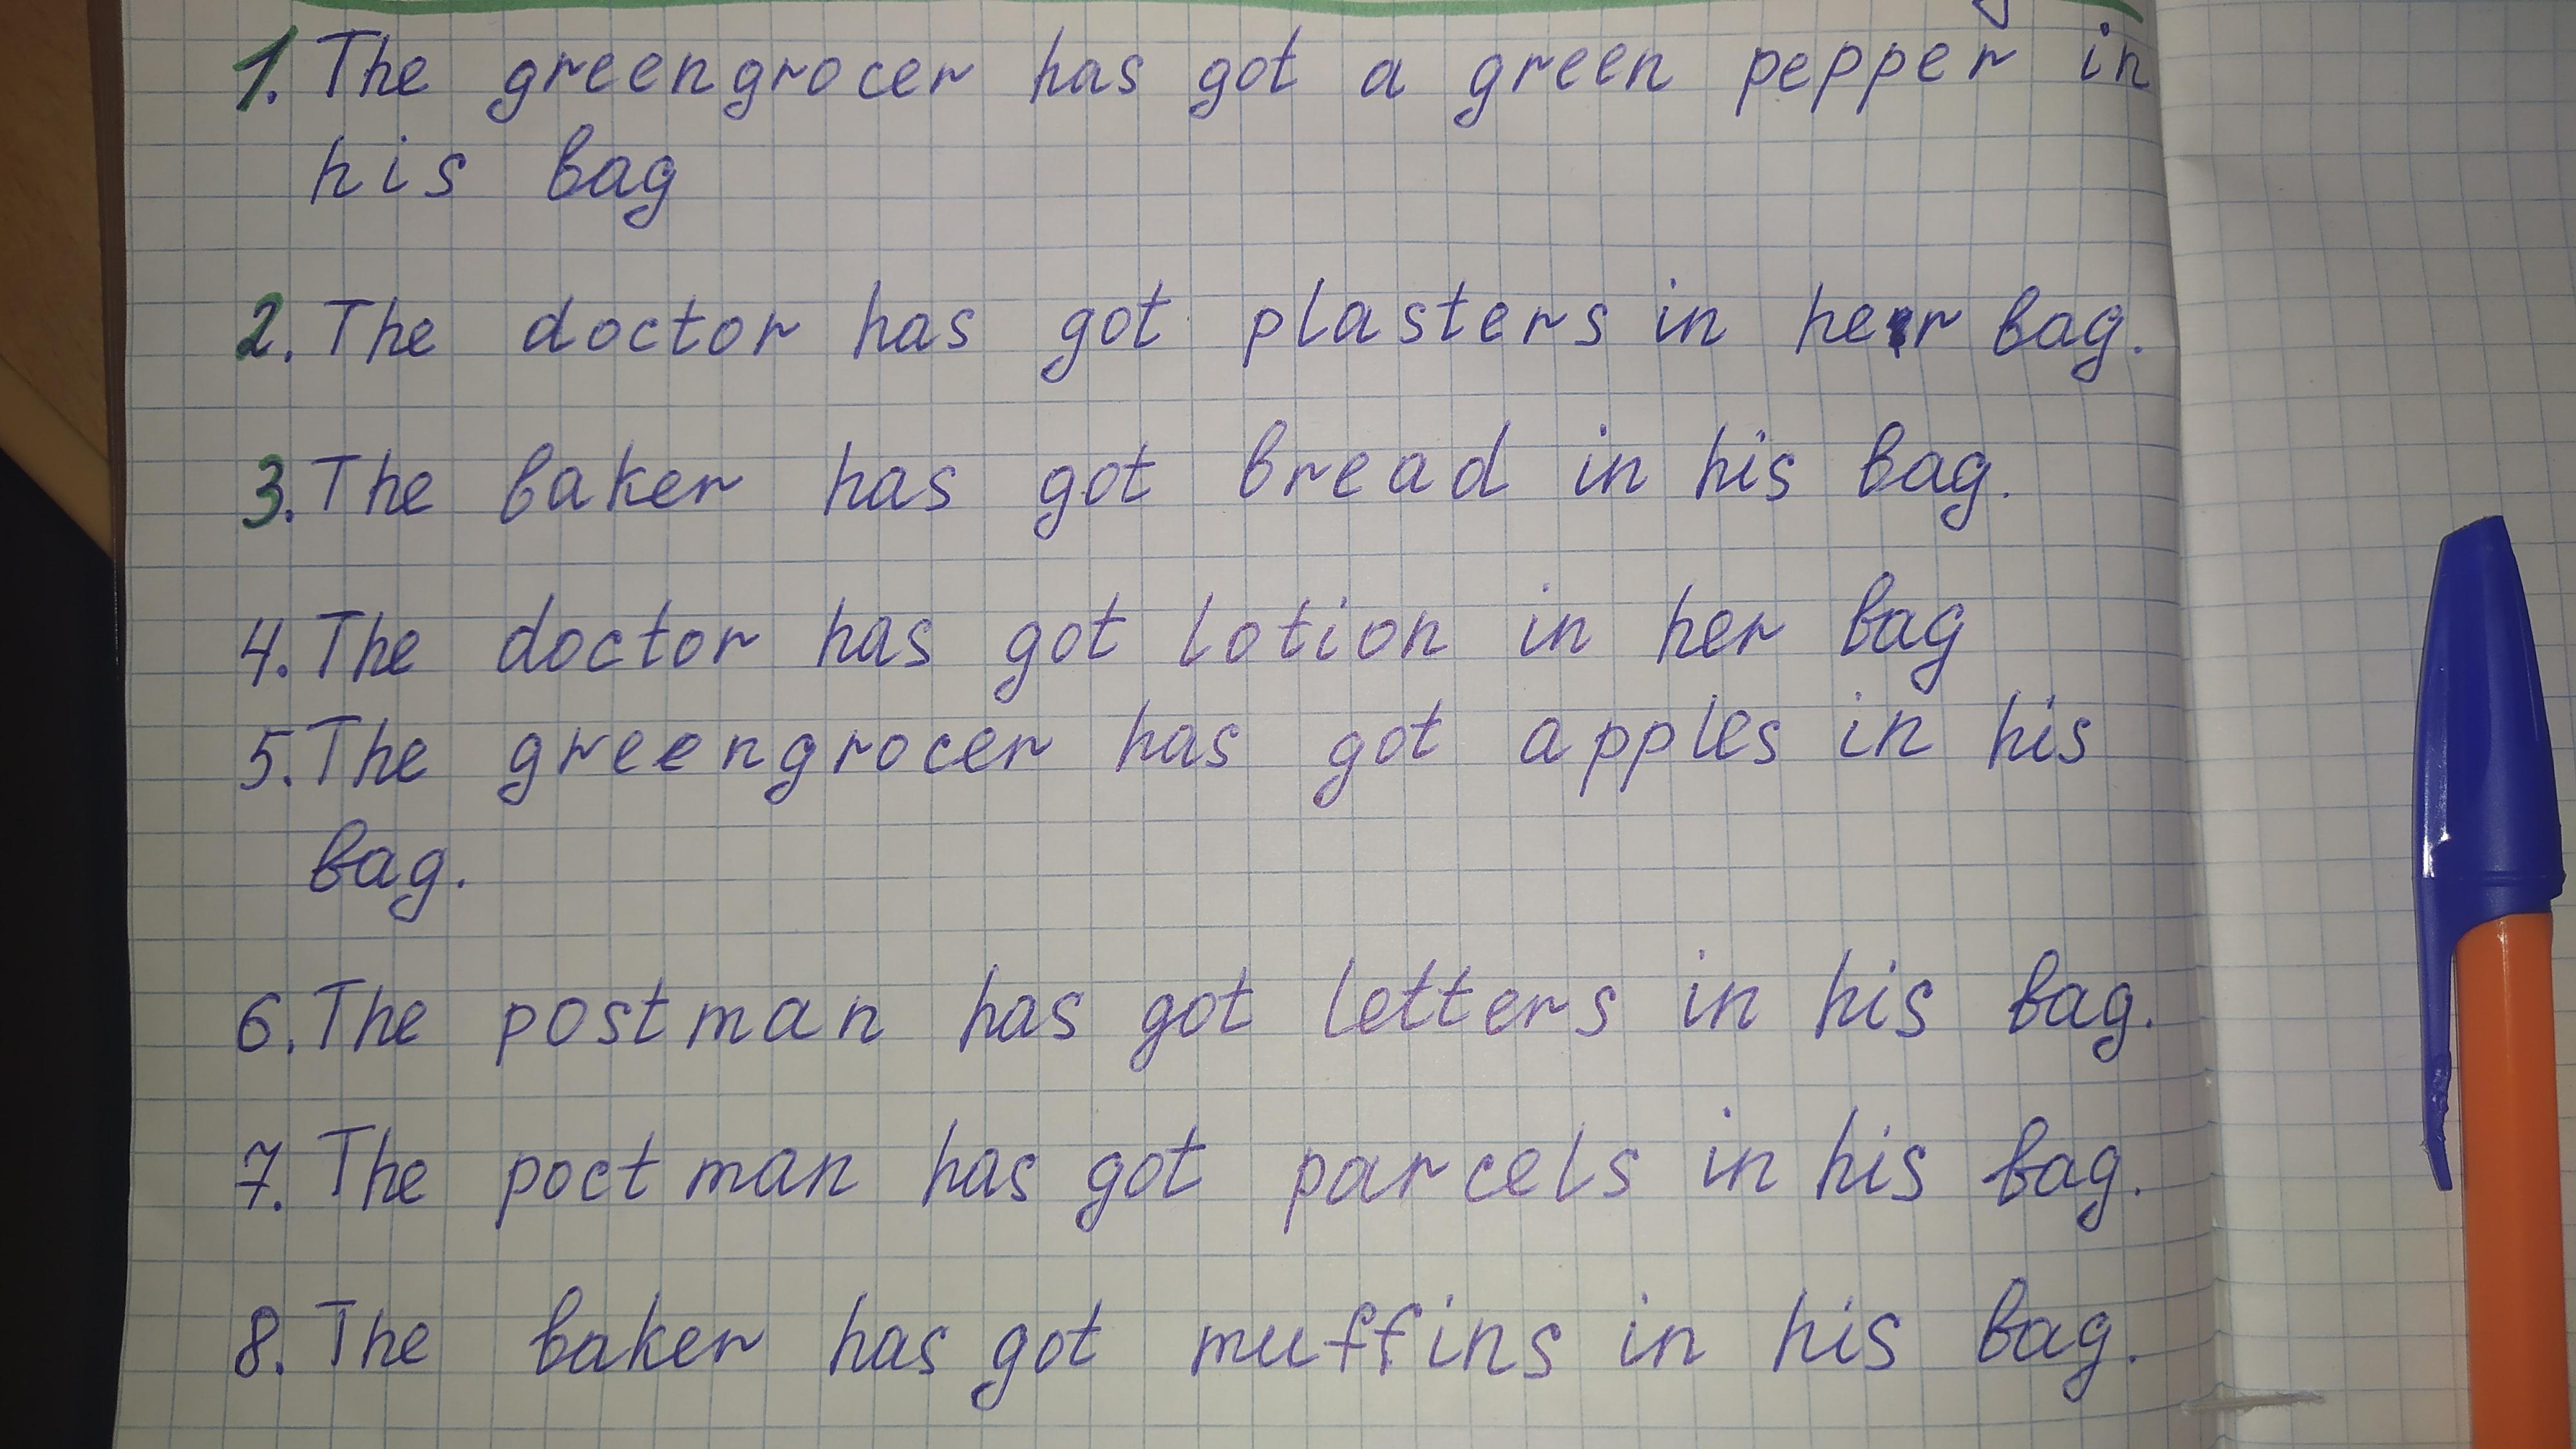 1. The greengrocer has got a green pepper in
his bag
2. The doctor has got plasters in her bag.
3. The baker has got bread in his bag.
4. The doctor has got lotion in her bag
5. The greengrocer has got apples in his
bag.
6. The postman has got letters in his bag.
7. The poctman has got parcels in his bag.
8. The baker has got muffins in his bag.